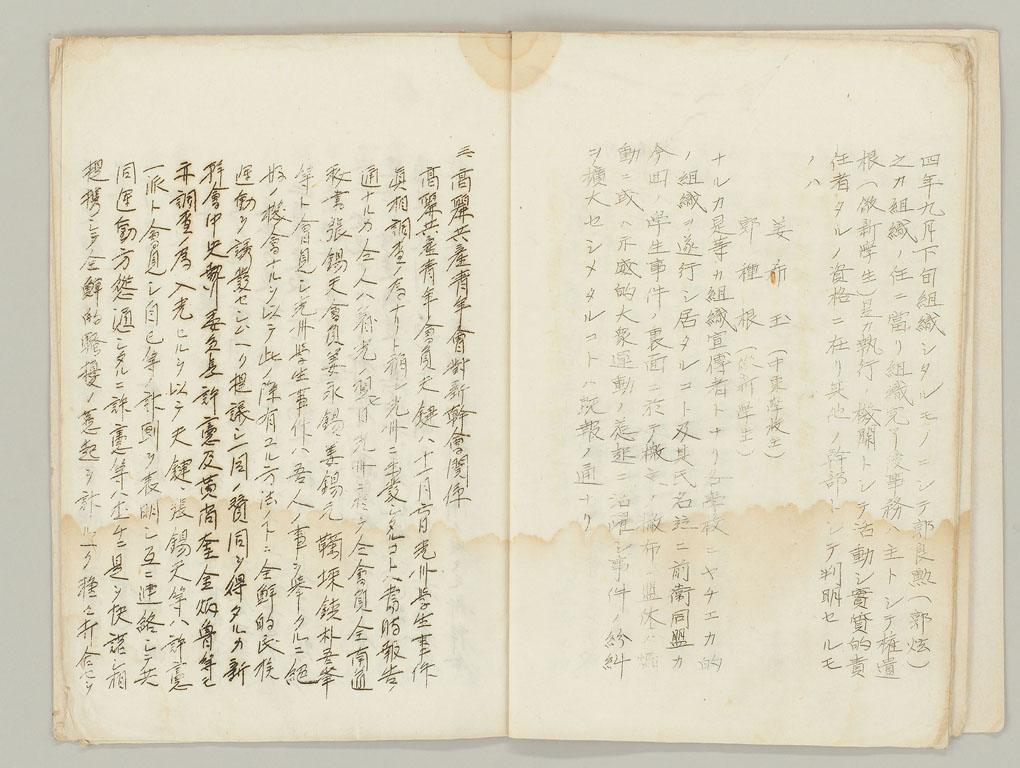 四年九月下旬組織シタルモノニシテ郭良勲(郭炫)
之カ組織ノ任ニ當リ組織完了後事務ノ主トシテ権遺
根(徽新学生)是カ執行機關トシテ活動シ實質的責
任者タルノ資格ニ在リ其他ノ幹部トシテ判明セルモ
ノハ
姜希玉(中東学校生)
鄭種根(徽新学生)
ナルカ是等カ組織宣傳者トナリ各学校ニヤチエカ的
ノ組織ヲ遂行シ居タルコト及其氏名竝ニ前衛同盟カ
今回ノ学生事件ノ裏面ニ於テ檄文ノ撒布、盟休ハ
動ニ或ハ示威的大衆運動ノ慫慂ニ活躍シ事件ノ紛糾
ヲ擴大セシメタルコトハ既報ノ通ナリ
三、高麗共産青年會對新幹會関係
高麗共産青年會員夫鍵ハ十一月六日光州学生事件
眞相調査ノ為ナリト稱シ光州ニ来レルコトハ當時報告ノ
通ナルカ仝人ハ着光ノ翌日光州ニ於テ仝會員全南道
秘書張錫天會員姜永錫、姜錫元
等ト會見シ光州学生事件ハ吾人ノ事ヲ挙クルニ絶
好ノ機會ナルヲ以テ此ノ際有ユル方法ノ下ニ全鮮的民族
運動ヲ誘發セシムヘク提議シ一同ノ賛同ヲ得タルカ新
幹會中央執委員長許憲及黄尚奎金炳魯等モ
亦調査ノ為入光セルヲ以テ夫鍵張錫天等ハ許憲
一派ト會見シ自己等ノ計劃ヲ表明シ互ニ連絡シテ共
同運動方慫通シタルニ許憲等ハ直ニ是ヲ快諾シ相
提携シテ全鮮的騒擾ノ惹起ヲ計ルヘク種々打合セヲ